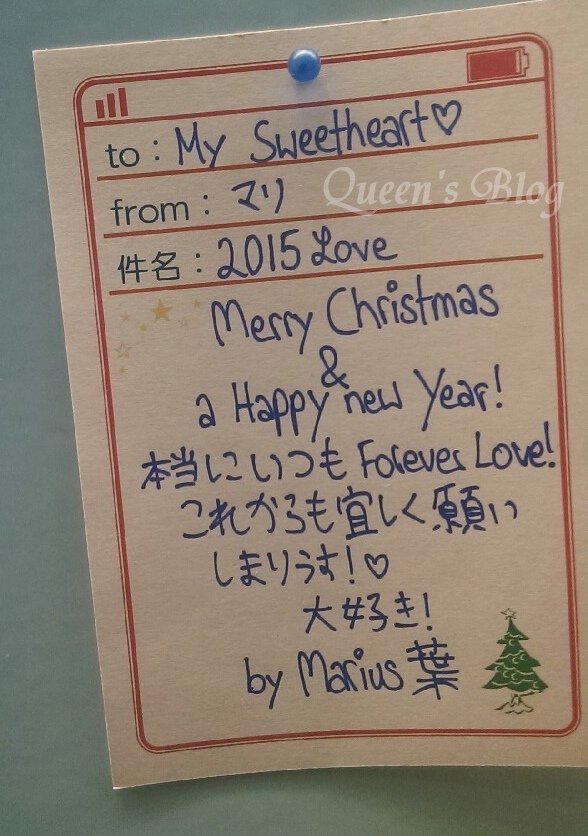 to : My Sweetheart♡
from : マリ
Queen's Blog
件名 : 2015 Love
Merry Christmas
&
a Happy new Year!
本当にいつも Forever Love!
これからも宜しく願い
しまりうす!♡
大好き!
by Marius 葉